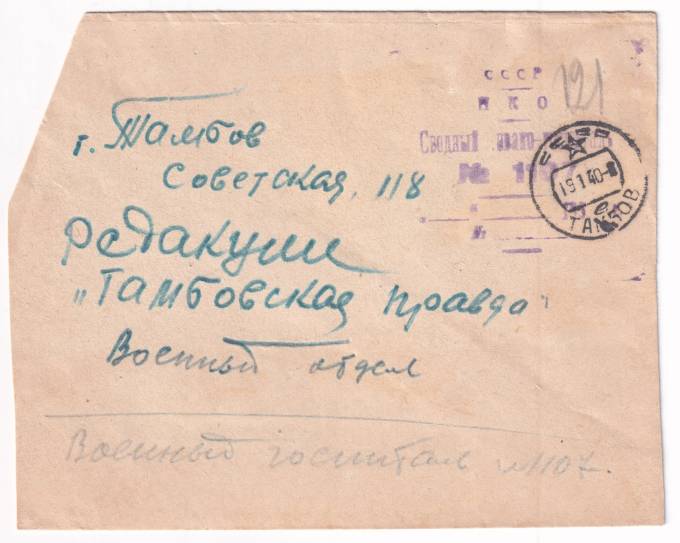 СССР
НКО
121
Сводный
№
СССР
19 1 40
ТАМБОВ
г. Тамбов
Советская, 118
Редакции
"Тамбовская правда"
Военный отдел
Военный госпиталь №1107